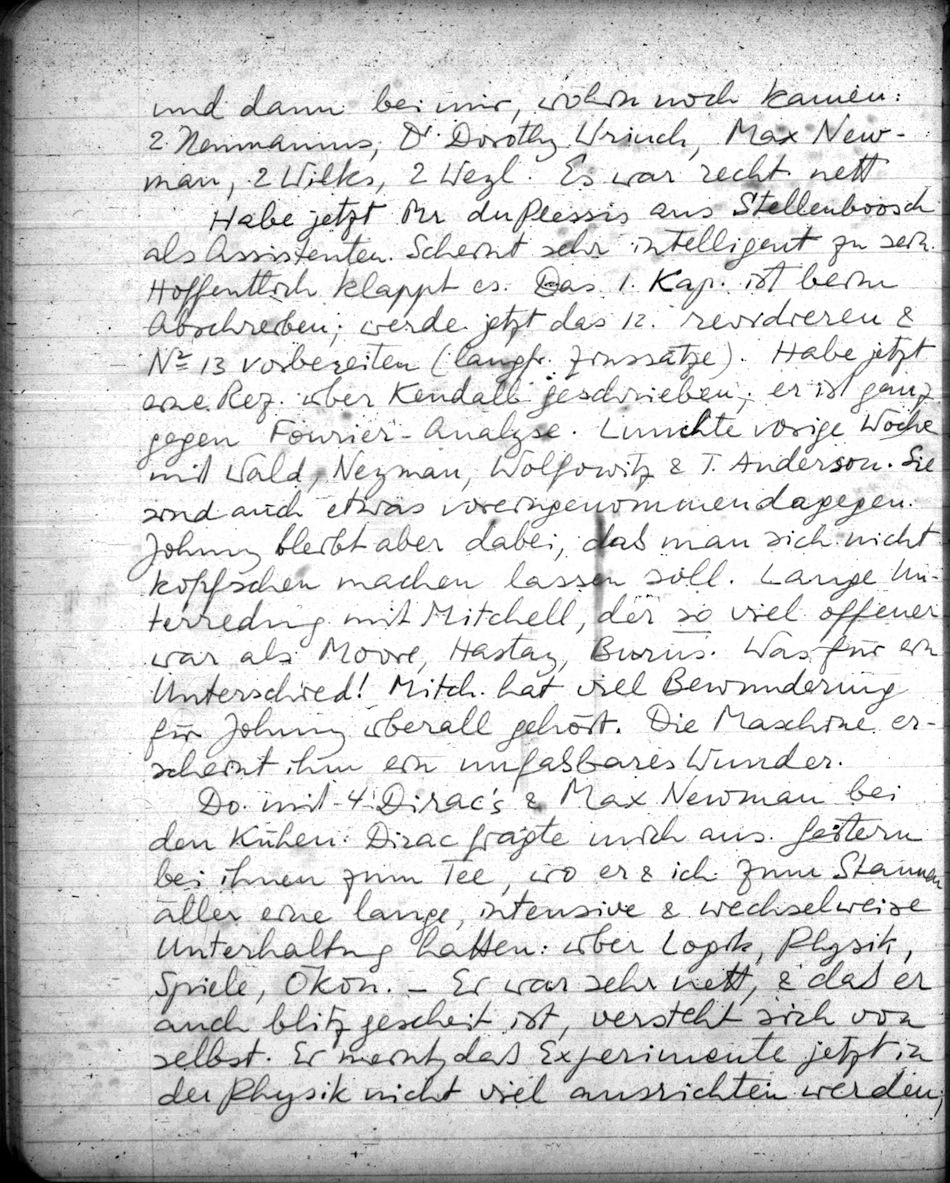 und dann bei mir, wohin noch kamen:
2 Neumanns, Dr Dorothy Wrinch, Max New-
man, 2 Wilks, 2 Weyl. Es war recht nett
Habe jetzt Mr du Plessis aus Stellenbosch
als Assistenten. Scheint sehr intelligent zu sein.
Hoffentlich klappt es. Das 1. Kap. ist beim
Abschreiben; werde jetzt das 12. revidieren &
No 13 vorbereiten (langfr. Zinssätze). Habe jetzt
eine Rez. über Kendall geschrieben; er ist ganz
gegen Fourier-Analyse. Lunchte vorige Woche
mit Wald, Neyman, Wolfowitz & T. Anderson. Sie
sind auch etwas voreingenommen dagegen.
Johnny bleibt aber dabei, daß man sich nicht
kopfscheu machen lassen soll. Lange Un-
terredung mit Mitchell, der so viel offener
war als Moore, Hastay, Burns. Was für ein
Unterschied! Mitch. hat viel Bewunderung
für Johnny überall gehört. Die Maschine er-
scheint ihm ein unfaßbares Wunder.
Do. mit 4 Dirac's & Max Newman bei
den Kühen. Dirac fragte mich aus. Gestern
bei ihnen zum Tee, wo er & ich zum Staunen
aller eine lange, intensive & wechselweise
Unterhaltung hatten: über Logik, Physik,
Spiele, Ökon. – Er war sehr nett, & daß er
auch blitzgescheit ist, versteht sich von
selbst. Er meint, daß Experimente jetzt in
der Physik nicht viel ausrichten werden,